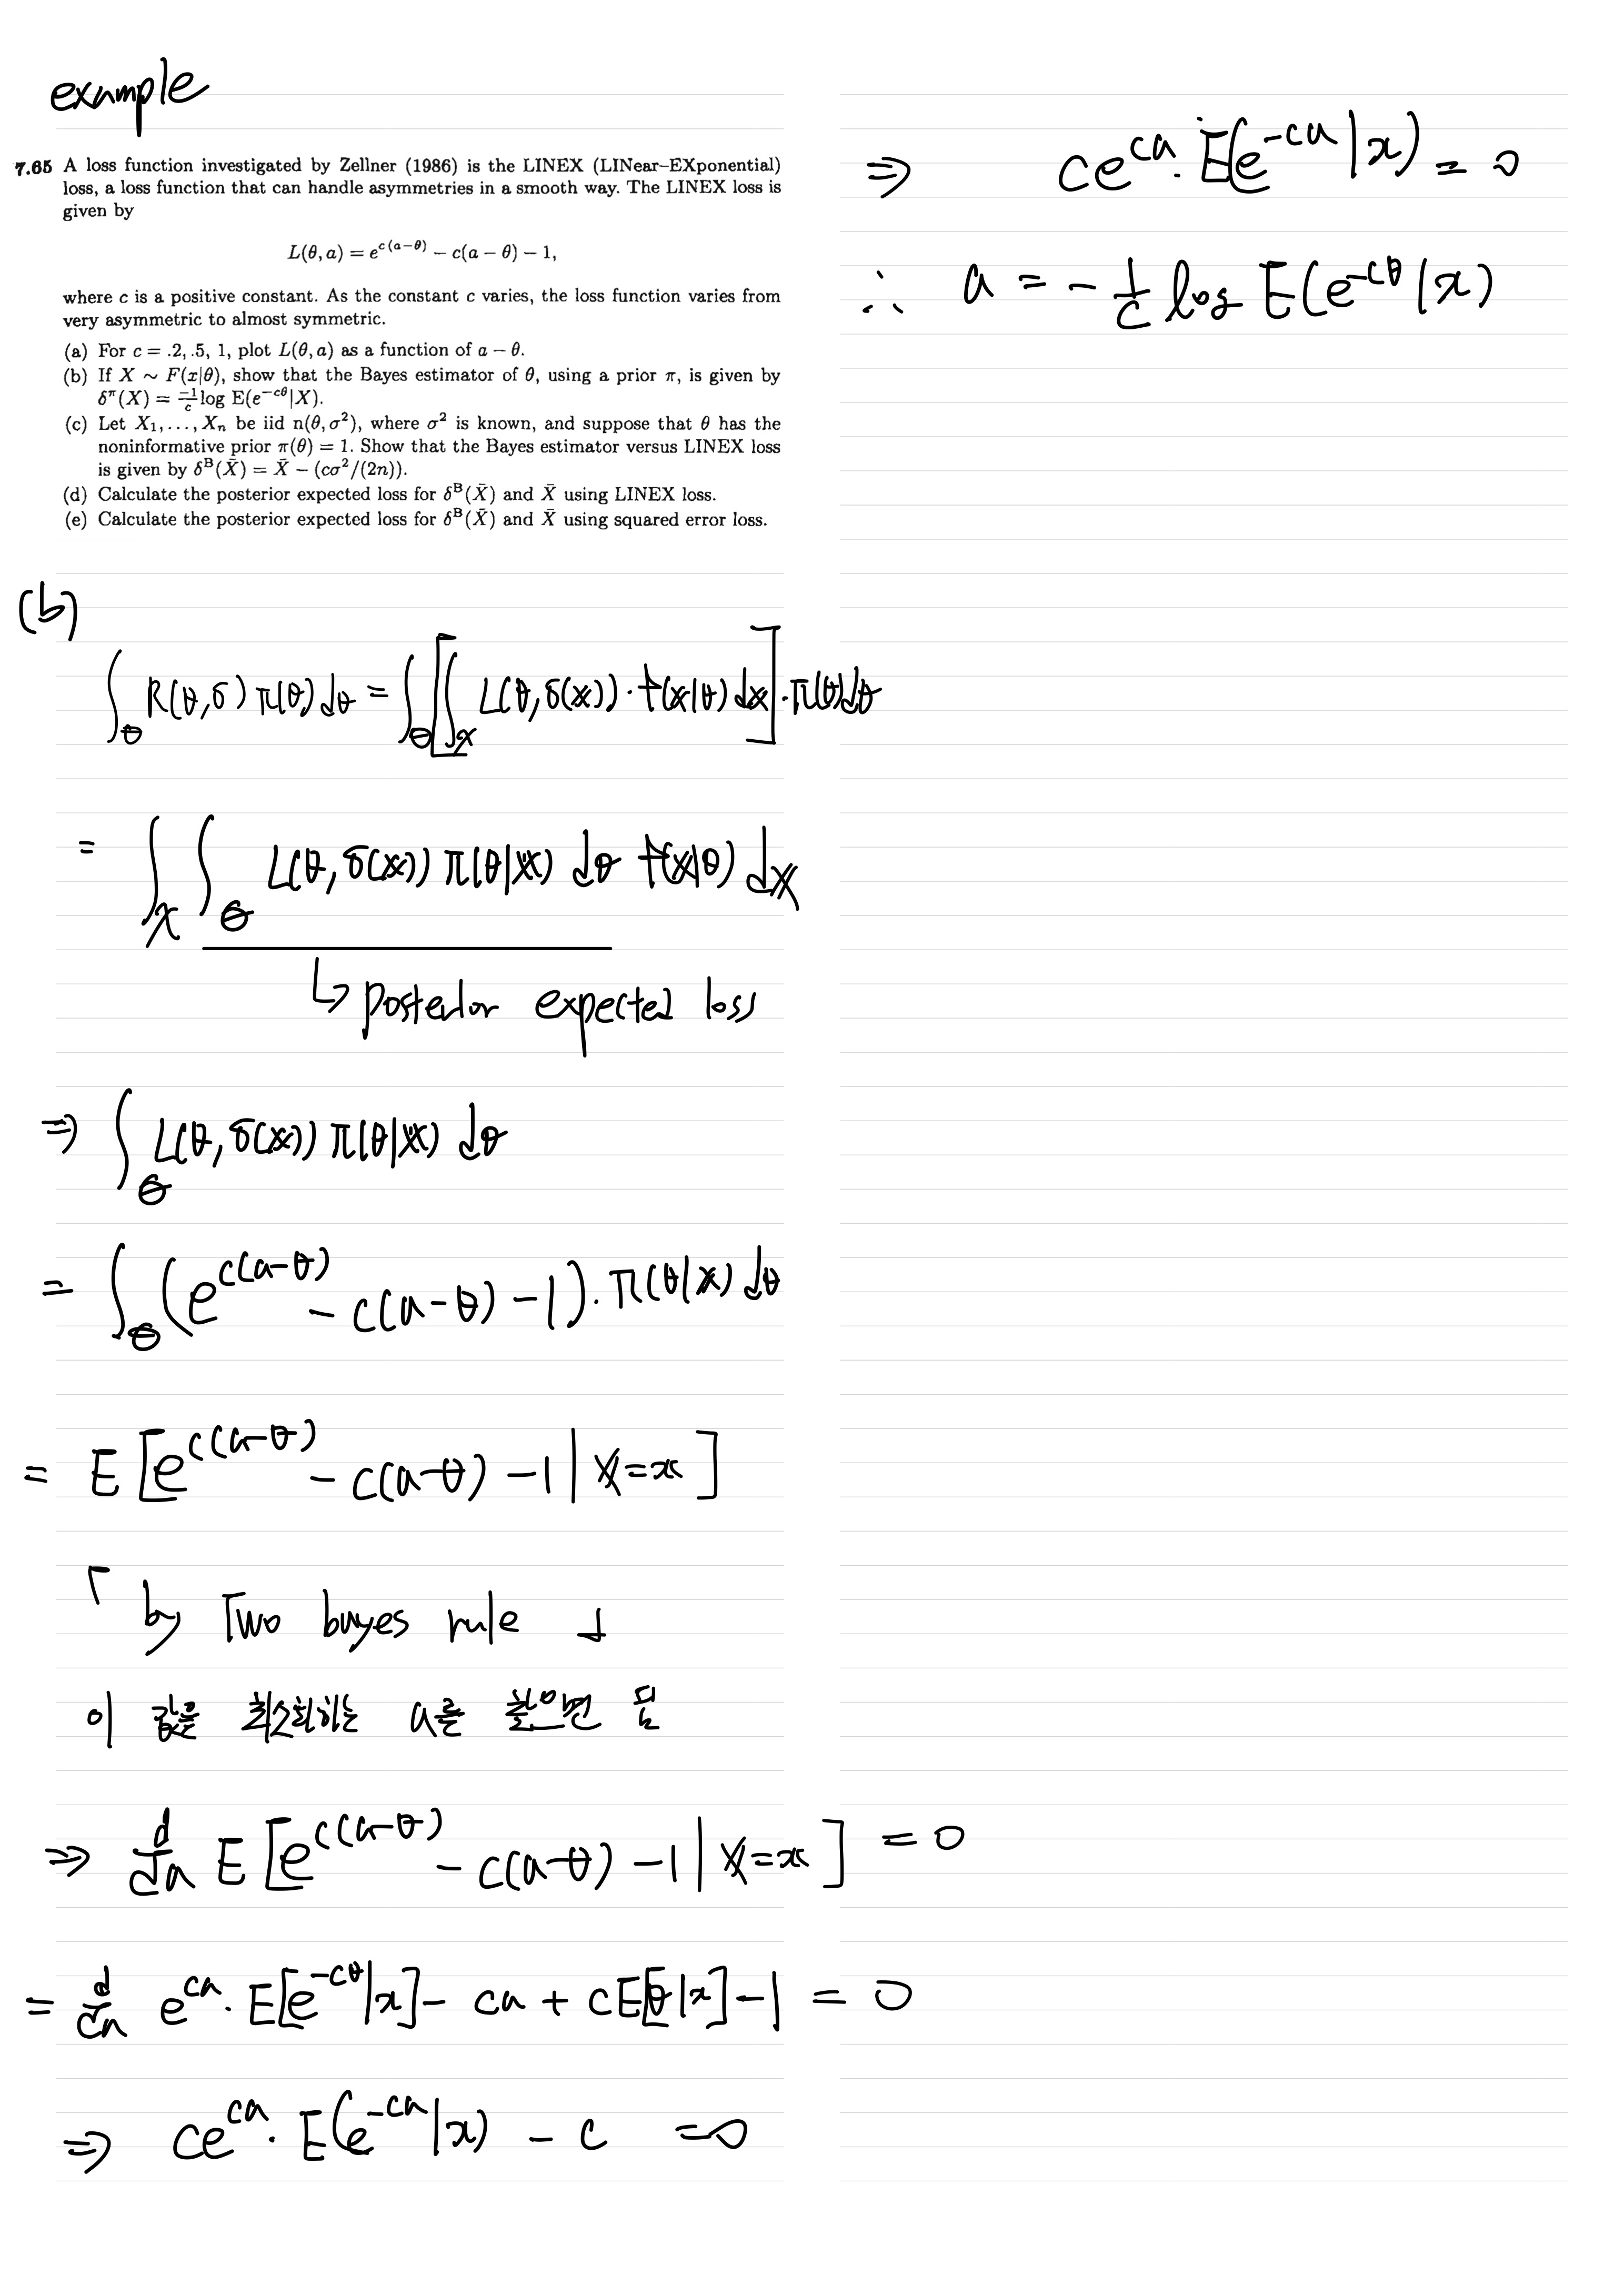 example
7.65 A loss function investigated by Zellner (1986) is the LINEX (LINear-EXponential)
loss, a loss function that can handle asymmetries in a smooth way. The LINEX loss is
given by
L(θ, a) = e^{c(a−θ)} − c(a − θ) − 1,
where c is a positive constant. As the constant c varies, the loss function varies from
very asymmetric to almost symmetric.
(a) For c = .2, .5, 1, plot L(θ, a) as a function of a − θ.
(b) If X ∼ F(x|θ), show that the Bayes estimator of θ, using a prior π, is given by
δ^π(X) = \frac{-1}{c} log E(e^{−cθ}|X).
(c) Let X₁, . . . , Xₙ be iid n(θ, σ²), where σ² is known, and suppose that θ has the
noninformative prior π(θ) = 1. Show that the Bayes estimator versus LINEX loss
is given by δ^B(X̄) = X̄ − (cσ²/(2n)).
(d) Calculate the posterior expected loss for δ^B(X̄) and X̄ using LINEX loss.
(e) Calculate the posterior expected loss for δ^B(X̄) and X̄ using squared error loss.
(b)
∫_Θ R(θ, δ) π(θ) dθ = ∫_Θ [∫_χ L(θ, δ(x)) · f(x|θ) dx] · π(θ) dθ
= ∫_χ ∫_Θ L(θ, δ(x)) π(θ|x) dθ f(x|θ) dx
↳ posterior expected loss
⇒ ∫_Θ L(θ, δ(x)) π(θ|x) dθ
= ∫_Θ (e^{c(a−θ)} − c(a−θ) − 1) · π(θ|x) dθ
= E [e^{c(a−θ)} − c(a−θ) − 1 | X = x]
「 by Two bayes rule 」
이 값을 최소화하는 a를 찾으면 됨
⇒ \frac{d}{da} E [e^{c(a−θ)} − c(a−θ) − 1 | X = x] = 0
= \frac{d}{da} e^{ca} · E[e^{−cθ}|x] − ca + cE[θ|x] − 1 = 0
⇒ ce^{ca} · E(e^{−ca}|x) − c = 0
⇒ ce^{ca} · E(e^{−ca}|x) = 0
∴ a = − \frac{1}{c} log E(e^{−cθ}|x)